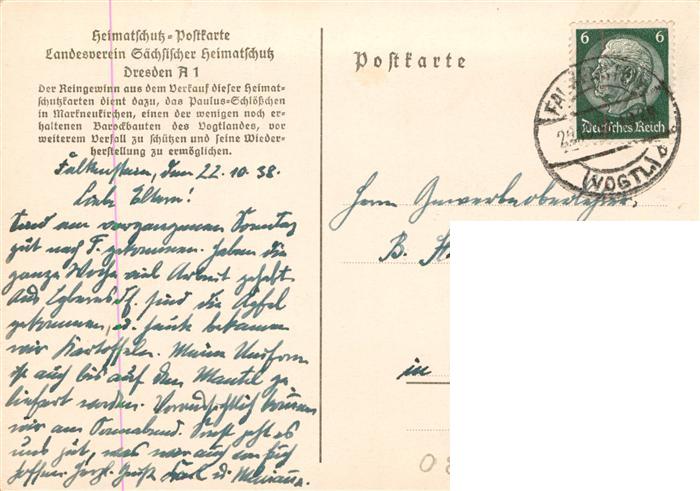 Heimatschutz-Postkarte
Landesverein Sächsischer Heimatschutz
Dresden A 1
Der Reingewinn aus dem Verkauf dieser Heimat-
schutzkarten dient dazu, das Paulus-Schlößchen
in Markneukirchen, einen der wenigen noch er-
haltenen Barockbauten des Vogtlandes, vor
weiterem Verfall zu schützen und seine Wieder-
herstellung zu ermöglichen.
Falkenstein, den 22.10.38.
Liebe Eltern!
Sind am vergangenen Sonntag
gut nach F. gekommen. Haben die
ganze Woche viel Arbeit gehabt.
Aus sind die Äpfel
gekommen, u. heute bekamen
wir Kartoffeln. Meine Uniform
ist auch bis auf den Mantel ge
liefert worden. Voraussichtlich
wir am Sonnabend. Sonst geht es
uns gut, was wir auch von Euch
hoffen. Herzl. Grüße Karl u.
Postkarte
6 6
Deutsches Reich
(VOGTL)
Herrn Gewerbeoberlehrer,
B. H
in